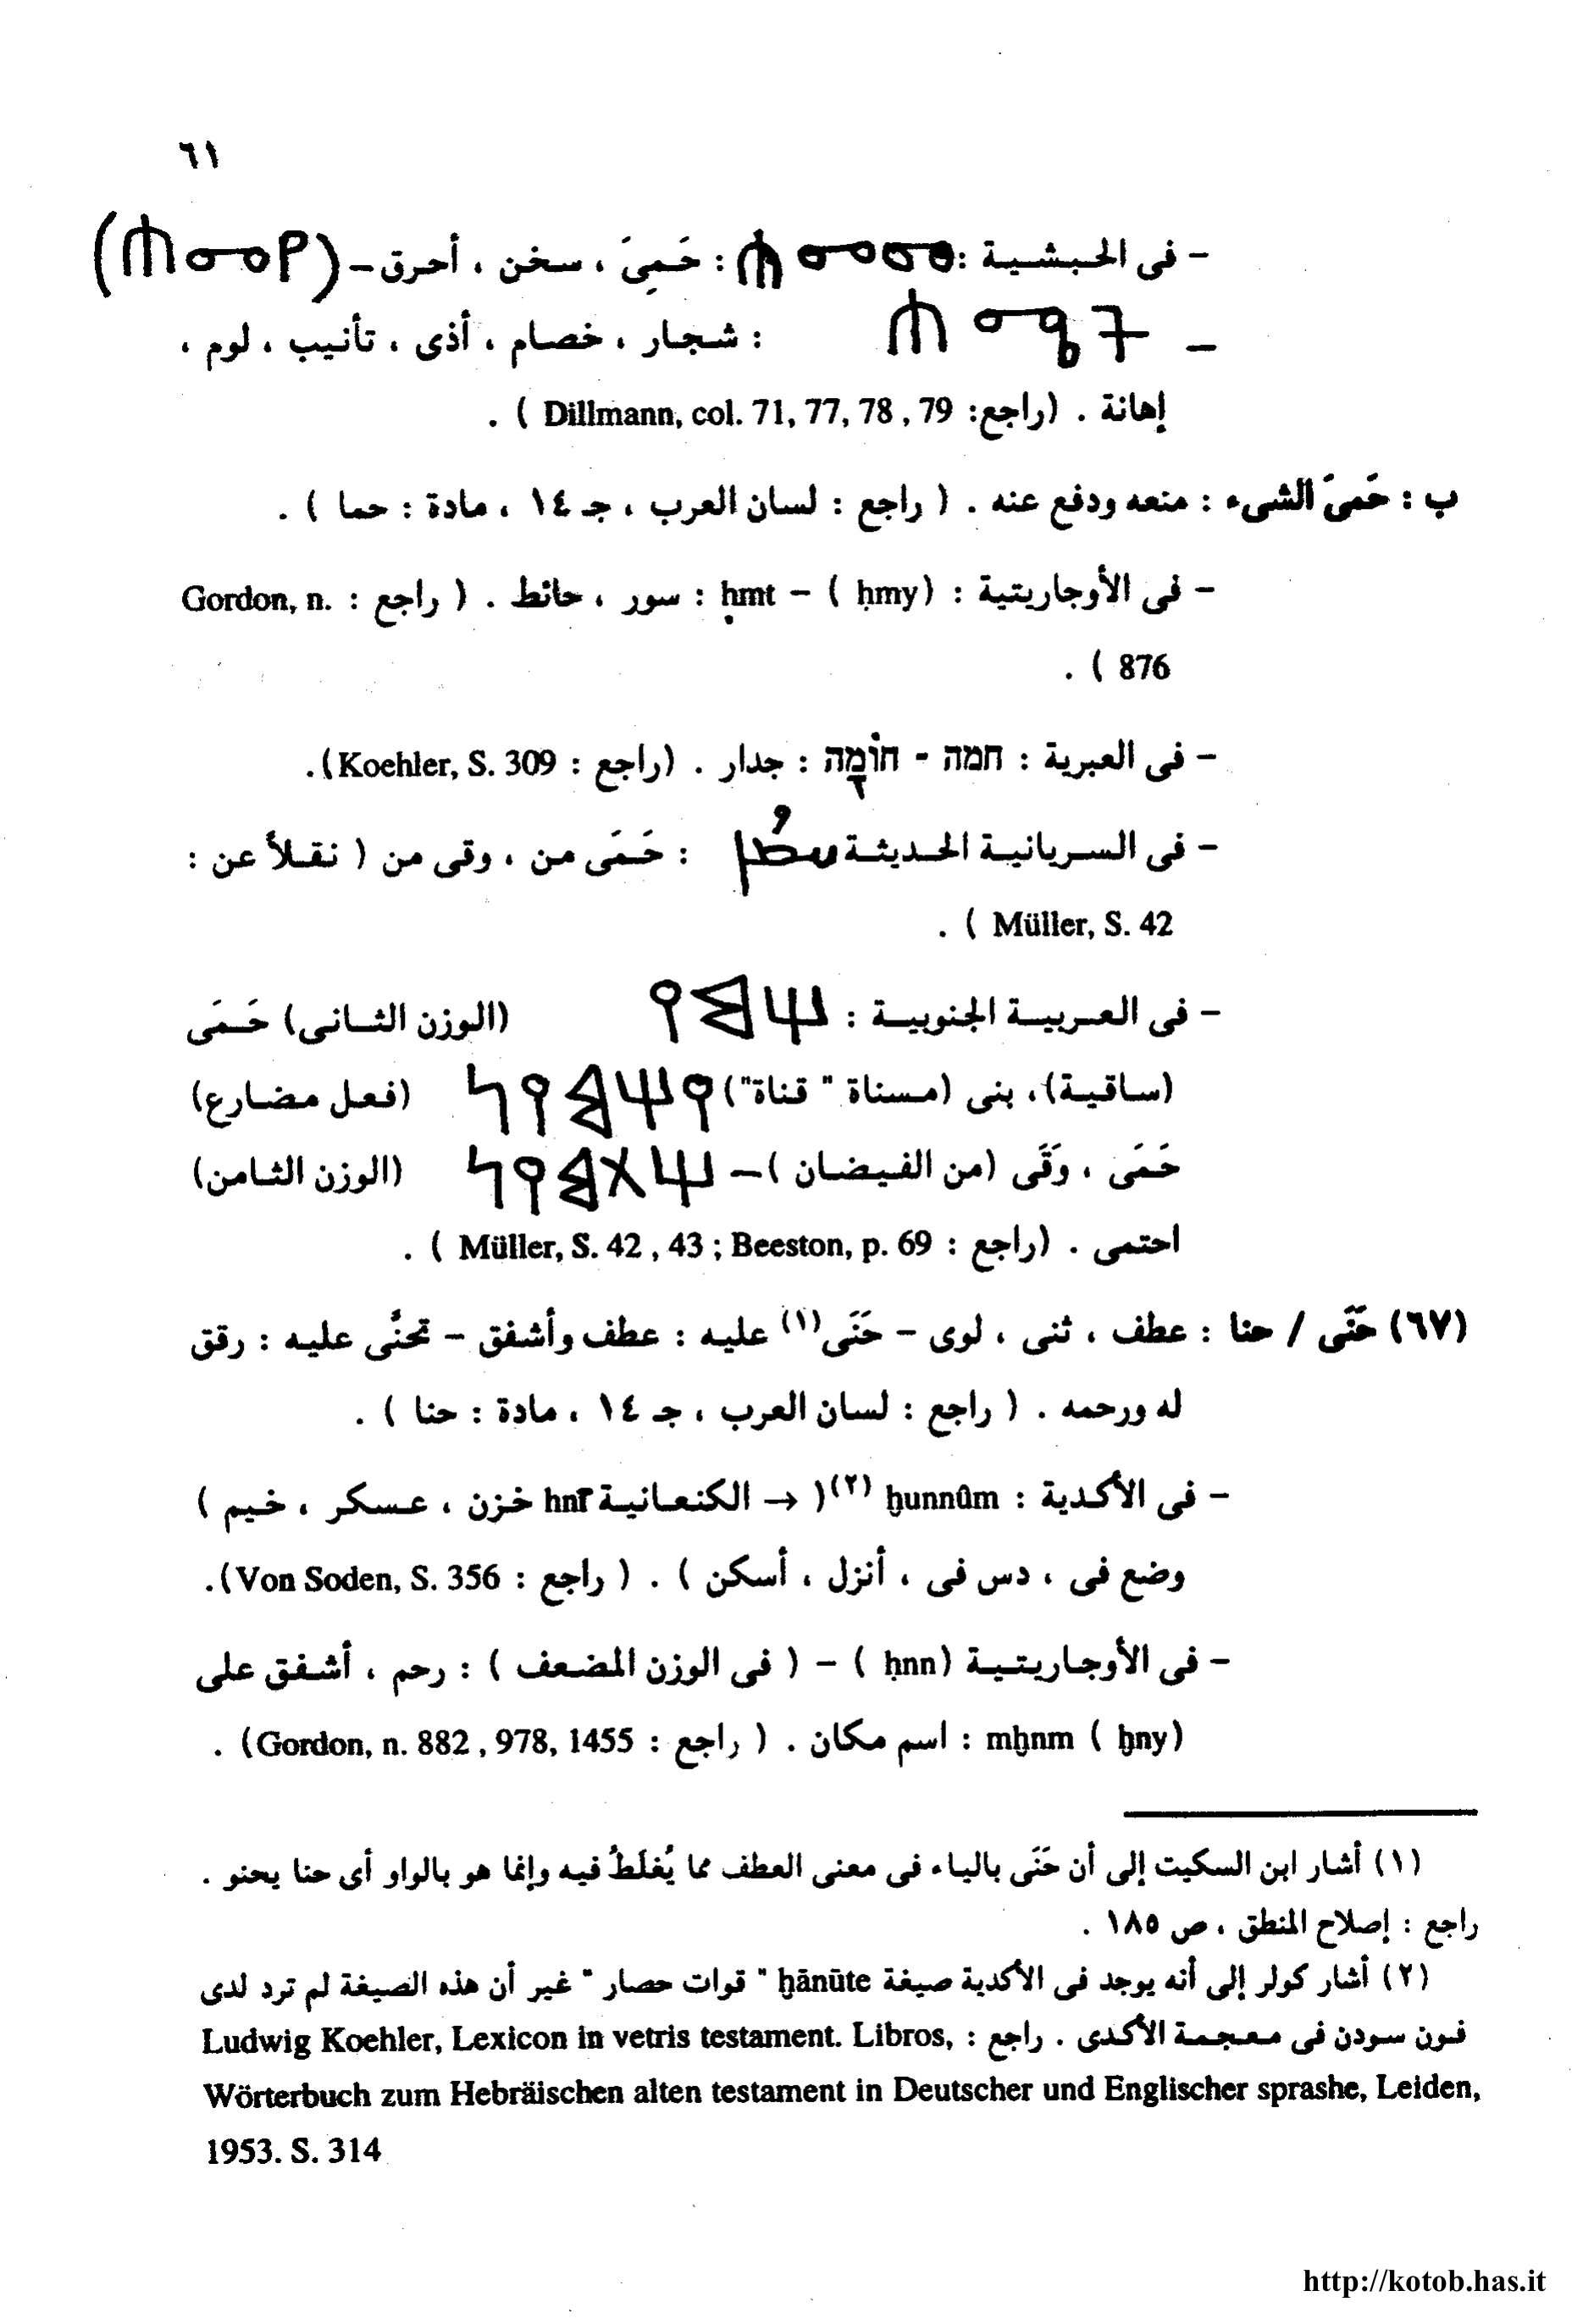 ٦١
- فى الحبشية : : حَمِىَ ، سخن ، أحرق - (ሐመየ)
- : شجار ، خصام ، أذى ، تأنيب ، لوم ،
إهانة . (راجع: Dillmann, col. 71, 77, 78 , 79 ) .
ب : حَمىَ الشىء : منعه ودفع عنه . ( راجع : لسان العرب ، جـ ١٤ ، مادة : حما ) .
- فى الأوجاريتية : (ḥmy ) - ḥmt : سور ، حائط . ( راجع : Gordon, n.
876 ) .
- فى العبرية : חמה - חוֹמָה : جدار . (راجع : Koehler, S. 309).
- فى السريانية الحديثة : حَمَى من ، وقى من ( نقلاً عن :
Müller, S. 42 ) .
- فى العربية الجنوبية : 𐩢𐩣𐩺 (الوزن الثانى) حَمَى
(ساقية)، بنى (مسناة " قناة") 𐩺𐩢𐩣𐩺𐩬 (فعل مضارع)
حَمَى ، وَقَى (من الفيضان )- 𐩢𐩩𐩣𐩺𐩬 (الوزن الثامن)
احتمى . (راجع : Müller, S. 42 , 43 ; Beeston, p. 69 ) .
(٦٧) حَنَّى / حنا : عطف ، ثنى ، لوى - حَنَى(١) عليه : عطف وأشفق - تحنَّى عليه : رقق
له ورحمه . ( راجع : لسان العرب ، جـ ١٤ ، مادة : حنا ) .
- فى الأكدية : ḫunnûm (٢)( → الكنعانية hnī خزن ، عسكر ، خيم )
وضع فى ، دس فى ، أنزل ، أسكن ) . ( راجع : Von Soden, S. 356).
- فى الأوجاريتية (ḥnn ) - ( فى الوزن المضعف ) : رحم ، أشفق على
(ḫny ) mḫnm : اسم مكان . ( راجع : Gordon, n. 882 , 978, 1455) .
(١) أشار ابن السكيت إلى أن حَنَى بالياء فى معنى العطف مما يُغلَطُ فيه وإنما هو بالواو أى حنا يحنو .
راجع : إصلاح المنطق ، ص ١٨٥ .
(٢) أشار كولر إلى أنه يوجد فى الأكدية صيغة ḫānūte " قوات حصار " غير أن هذه الصيغة لم ترد لدى
فون سودن فى معجمة الأكدى . راجع : Ludwig Koehler, Lexicon in vetris testament. Libros,
Wörterbuch zum Hebräischen alten testament in Deutscher und Englischer sprashe, Leiden,
1953. S. 314
http://kotob.has.it